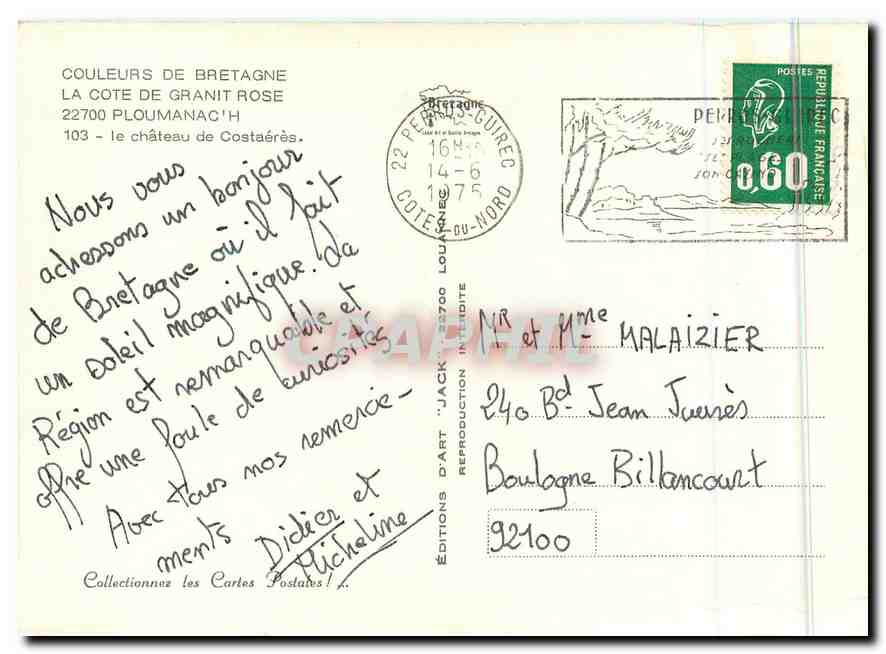 COULEURS DE BRETAGNE
LA COTE DE GRANIT ROSE
22700 PLOUMANAC'H
103 - le château de Costaérès.
Nous vous
adressons un bonjour
de Bretagne où il fait
un soleil magnifique. La
Région est remarquable et
offre une foule de curiosités
Avec tous nos remercie-
ments
Didier et
Micheline
Collectionnez les Cartes Postales! ...
Bretagne
22 PERROS-GUIREC
16H
14-6
1975
COTES-DU-NORD
ÉDITIONS D'ART "JACK" 22700 LOUANNEC
REPRODUCTION INTERDITE
CPAPHIL
PERROS-GUIREC
POSTES
REPUBLIQUE FRANÇAISE
0,60
Mr et Mme MALAIZIER
240 Bd Jean Jaurès
Boulogne Billancourt
92100